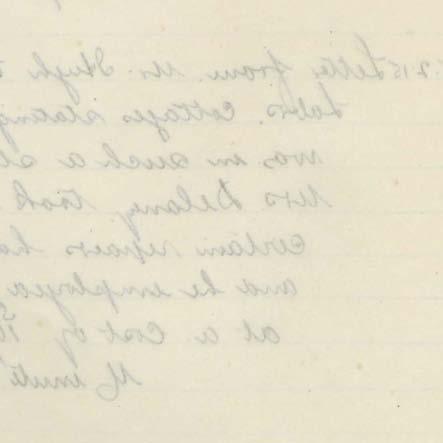 Letter from Mr. Hugh
Labrs. Cottages stating
was in such a st
Mrs Delany took
certain repairs ha
and he employed
at a cost of
Minute